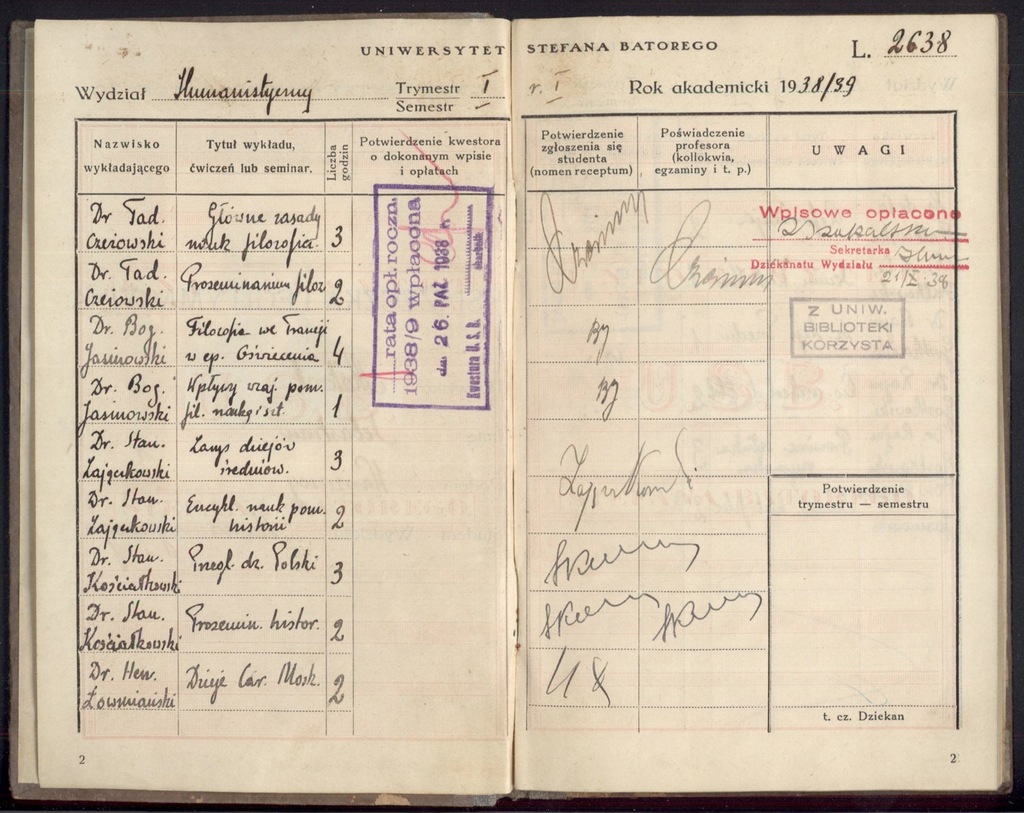 UNIWERSYTET STEFANA BATOREGO
L. 2638
Wydział Humanistyczny Trymestr I r. I Rok akademicki 1938/39
Semestr
Nazwisko wykładającego
Tytuł wykładu, ćwiczeń lub seminar.
Liczba godzin
Potwierdzenie kwestora o dokonanym wpisie i opłatach
Potwierdzenie zgłoszenia się studenta (nomen receptum)
Poświadczenie profesora (kollokwia, egzaminy i t. p.)
UWAGI
Dr Tad. Główne zasady
Czeżowski nauk filozofia. 3
Dr. Tad. Proseminarium filoz
Czeżowski 2
Dr. Bog. Filozofia we Francji
Jasinowski w ep. Oświecenia 4
Dr. Bog. Wpływy wzaj. pom.
Jasinowski fil. nauką i szt. 1
Dr. Stan. Zarys dziejów
Zajączkowski średniow. 3
Dr. Stan. Encykl. nauk pom.
Zajączkowski historii 2
Dr. Stan. Przegl. dz. Polski
Kościałkowski 3
Dr. Stan. Prozemin. histor.
Kościałkowski 2
Dr. Hen. Dzieje Car. Mosk.
Łowmiański 2
rata opł. roczn.
1938/9 wpłacona
dn. 26. PAŹ 1938 r.
Kwestura U. S. B.
skarbnik
BJ
BJ
Wpisowe opłacono
Sekretarka
Dziekanatu Wydziału
21/X 38
Z UNIW.
BIBLIOTEKI
KORZYSTA
Potwierdzenie
trymestru — semestru
t. cz. Dziekan
2
2